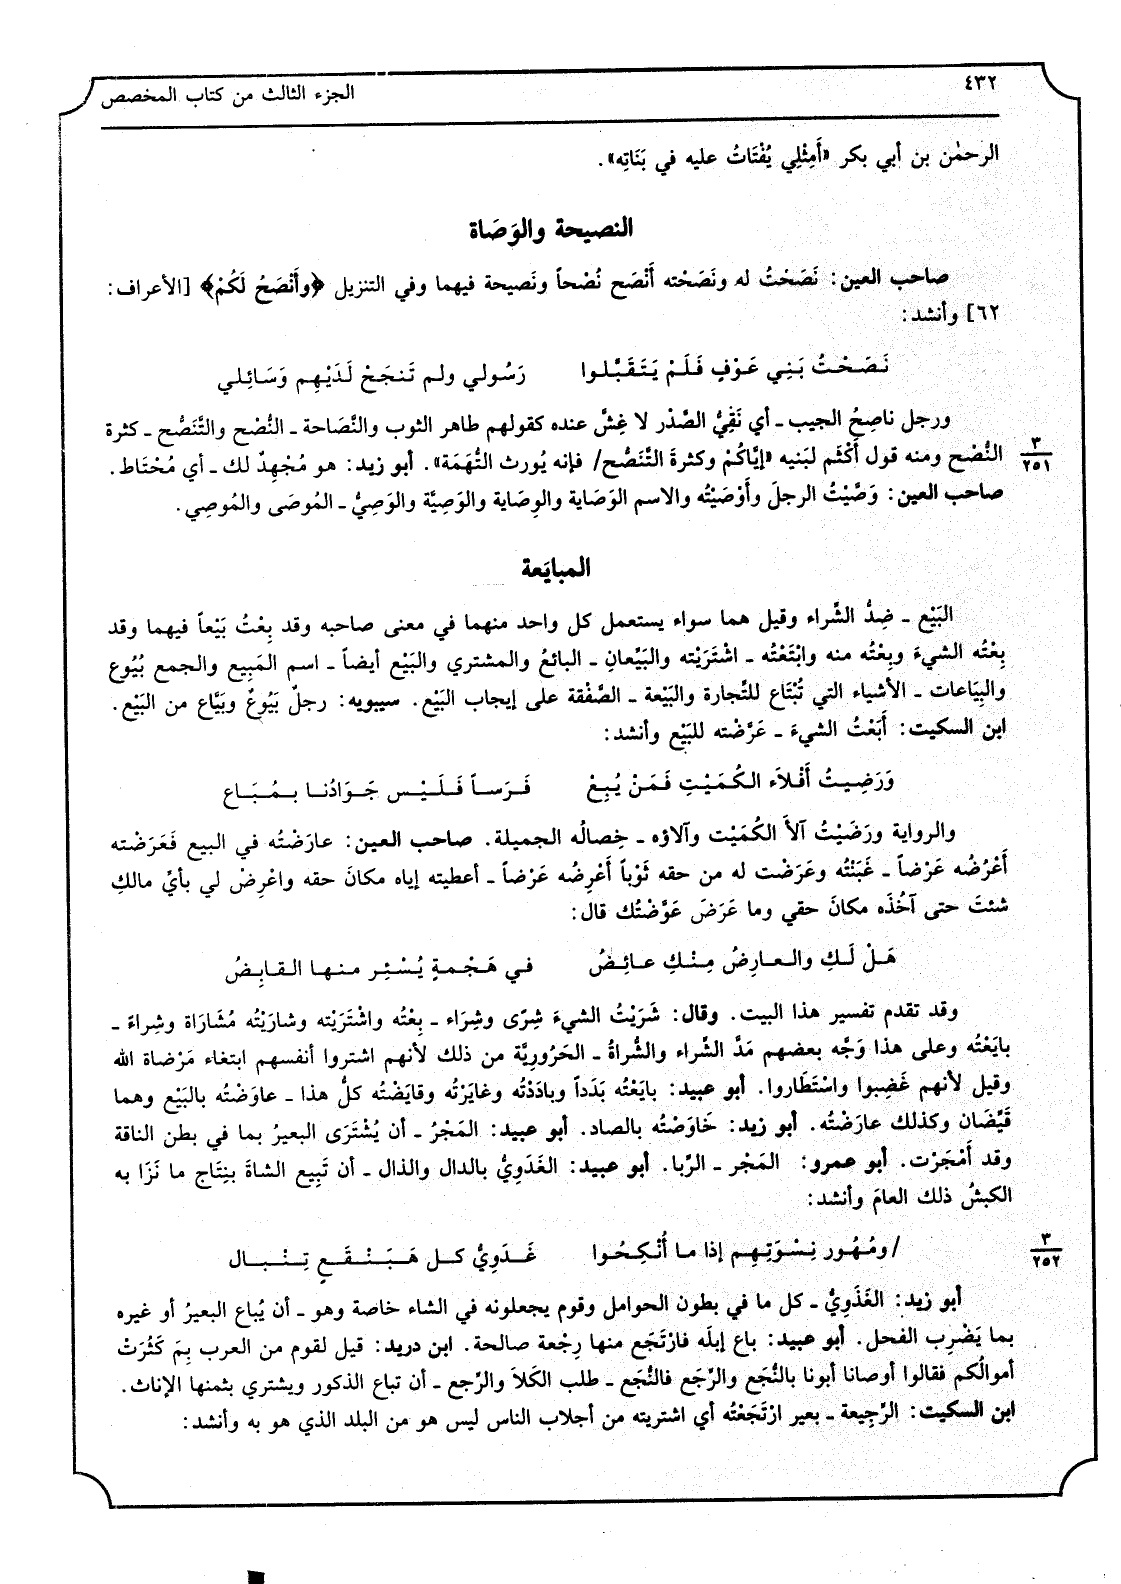 ٤٣٢
الجزء الثالث من كتاب المخصص
الرحمٰن بن أبي بكر «أَمِثْلِي يُفْتَاتُ عليه في بَنَاتِه».
النصيحة والوَصَاة
صاحب العين: نَصَحْتُ له ونَصَحْته أَنْصَح نُصْحاً ونَصيحة فيهما وفي التنزيل ﴿وأَنْصَحُ لَكُمْ﴾ [الأعراف:
٦٢] وأنشد:
نَصَحْتُ بَنِي عَوْفٍ فَلَمْ يَتَقَبَّلوا رَسُولي ولم تَنجَحْ لَدَيْهِم وَسَائِلي
ورجل ناصِحُ الجيب ـ أي نَقِيُّ الصَّدْر لا غِشَّ عنده كقولهم طاهر الثوب والنَّصَاحة ـ النُّصْح والتَّنَصُّح ـ كثرة
٣
٢٥١
النُّصْح ومنه قول أَكْثَم لبَنيه «إيَّاكُمْ وكثرةَ التَّنَصُّح/ فإنه يُورث التُّهَمَة». أبو زيد: هو مُجْهِدٌ لك ـ أي مُحْتَاط.
صاحب العين: وَصَّيْتُ الرجلَ وأَوْصَيْتُه والاسم الوَصَاية والوِصاية والوَصِيَّة والوَصِيُّ ـ المُوصَى والمُوصِي.
المبايَعة
البَيْع ـ ضِدُّ الشَّراء وقيل هما سواء يستعمل كل واحد منهما في معنى صاحبه وقد بِعْتُ بَيْعاً فيهما وقد
بِعْتُه الشيءَ وبِعْتُه منه وابْتَعْتُه ـ اشْتَرَيْته والبَيِّعانِ ـ البائعُ والمشتري والبَيْع أيضاً ـ اسم المَبِيع والجمع بُيُوع
والبِيَاعات ـ الأشياء التي تُبْتَاع للتِّجارة والبَيْعة ـ الصَّفْقة على إيجاب البَيْع. سيبويه: رجلٌ بَيُوعٌ وبَيَّاع من البَيْع.
ابن السكيت: أَبَعْتُ الشيءَ ـ عَرَّضْته للبَيْع وأنشد:
وَرَضِيتُ أَفْلاَء الكُمَيْتِ فَمَنْ يُبِعْ فَرَساً فَلَيْس جَوَادُنا بمُبَاع
والرواية ورَضَيْتُ آلاَ الكُمَيْت وآلاؤه ـ خِصالُه الجميلة. صاحب العين: عارَضْتُه في البيع فَعَرَضْته
أَعْرُضْه عَرْضاً ـ غَبَنْتُه وعَرَضْت له من حقه ثَوْباً أَعْرِضُه عَرْضاً ـ أعطيته إياه مكانَ حقه واعْرِضْ لي بأيِّ مالكِ
شئتَ حتى آخُذَه مكانَ حقي وما عَرَضَ عَوَّضْتُك قال:
هَلْ لَكِ والعارِضُ مِنْكِ عائِضُ في هَجْمةٍ يُسْئِر منها القابِضُ
وقد تقدم تفسير هذا البيت. وقال: شَرَيْتُ الشيءَ شِرًى وشِرَاء ـ بِعْتُه واشْتَرَيْته وشارَيْتُه مُشَارَاة وشِراءً ـ
بايَعْتُه وعلى هذا وَجَّه بعضهم مَدَّ الشِّراء والشُّراةُ ـ الحَرُورِيَّة من ذلك لأنهم اشتروا أنفسهم ابتغاء مَرْضاة الله
وقيل لأنهم غَضِبوا واسْتَطَاروا. أبو عبيد: بايَعْتُه بَدَداً وبادَدْتُه وغايَرْتُه وقايَضْتُه كلُّ هذا ـ عاوَضْتُه بالبَيْع وهما
قَيِّضَان وكذلك عارَضْتُه. أبو زيد: خَاوَصْتُه بالصاد. أبو عبيد: المَجْرُ ـ أن يُشْتَرَى البعيرُ بما في بطن الناقة
وقد أَمْجَرْت. أبو عمرو: المَجْر ـ الرِّبا. أبو عبيد: الغَدَوِيُّ بالدال والذال ـ أن تَبِيع الشاةَ بنِتَاج ما نَزَا به
الكبشُ ذلك العامَ وأنشد:
/ ومُهُور نِسْوَتِهِم إذا ما أُنْكِحُوا غَدَوِيُّ كل هَبَنْقَعٍ تِنْبال
٣
٢٥٢
أبو زيد: الغَذَوِيُّ ـ كل ما في بطون الحوامل وقوم يجعلونه في الشاء خاصة وهو ـ أن يُباع البعيرُ أو غيره
بما يَضْرِب الفحل. أبو عبيد: باع إبلَه فارْتَجَع منها رِجْعة صالحة. ابن دريد: قيل لقوم من العرب بِمَ كَثُرَتْ
أموالُكم فقالوا أوصانا أبونا بالنُّجَع والرِّجَع فالنُّجَع ـ طلب الكَلاَ والرِّجع ـ أن تباع الذكور ويشتري بثمنها الإناث.
ابن السكيت: الرَّجِيعة ـ بعير ارْتَجَعْتُه أي اشتريته من أجلاب الناس ليس هو من البلد الذي هو به وأنشد: